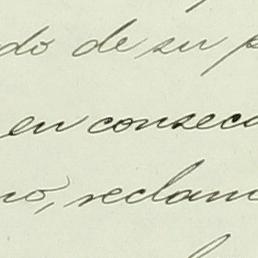 do de su p
en consecu
no, reclam